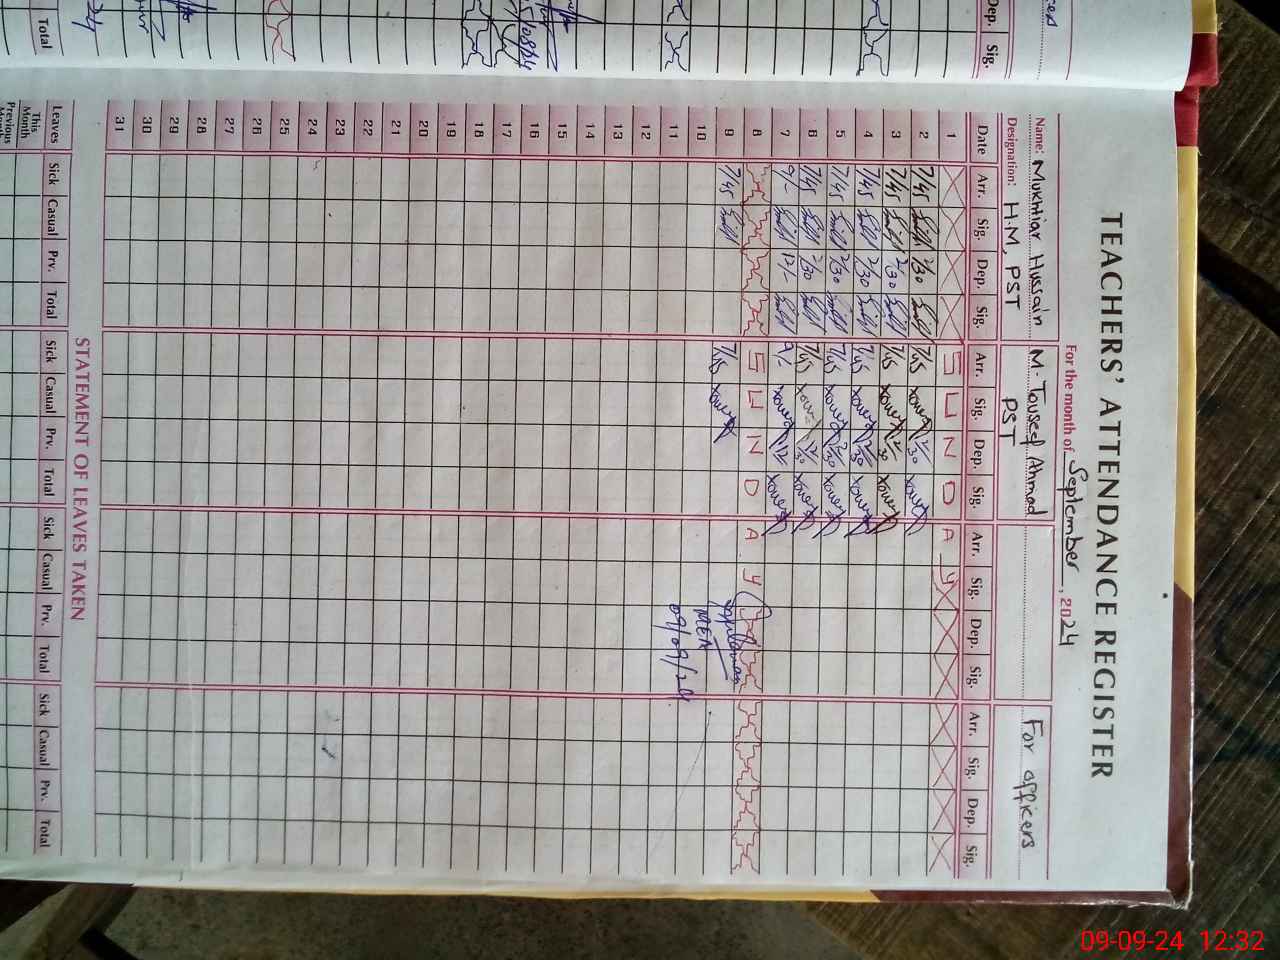 TEACHERS' ATTENDANCE REGISTER
For the month of September, 2024
Name: Mukhtiar Hussain M. Touseef Ahmad For officers
Designation: H.M, PST PST
Date Arr. Sig. Dep. Sig. Arr. Sig. Dep. Sig. Arr. Sig. Dep. Sig. Arr. Sig. Dep. Sig.
1 S U N D A Y
2 7/45 2/30 7/45 2/30
3 7/45 2/30 7/45 2/30
4 7/45 2/30 7/45 2/30
5 7/45 2/30 7/45 2/30
6 7/45 2/30 7/45 12/30
7 9/- 12/- 9/- 12/-
8 S U N D A Y
9 7/45 7/45
10 MEA
11 09/09/24
12
13
14
15
16
17
18
19
20
21
22
23
24
25
26
27
28
29
30
31
STATEMENT OF LEAVES TAKEN
Leaves Sick Casual Prv. Total Sick Casual Prv. Total Sick Casual Prv. Total Sick Casual Prv. Total
This Month
Previous
Dep. Sig.
Total
09-09-24 12:32